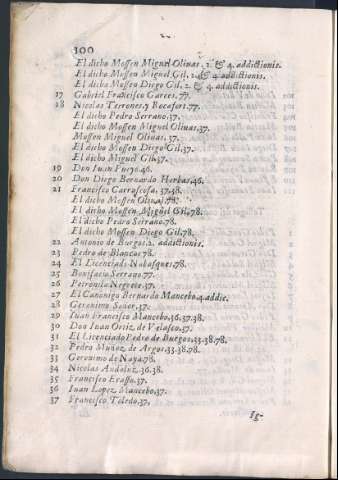 300
El dicho Mossen Miguel Olinas. 2. & 4. addictionis.
El dicho Mossen Miguel Gil. 2. & 4. addictionis.
El dicho Mossen Diego Gil. 2. & 4. addictionis.
17 Gabriel Francisco Garces. 77.
18 Nicolas Terrones, y Rocafort. 77.
El dicho Pedro Serrano. 37.
El dicho Mossen Miguel Olinas. 37.
Mossen Miguel Olinas. 37.
El dicho Mossen Diego Gil. 37.
El dicho Miguel Gil. 37.
19 Don Iuan 46.
20 Don Diego Bernardo Herbas. 46.
21 Francisco Carroscosa. 37. 38.
El dicho Mossen Olinas. 78.
El dicho Mossen Miguel Gil. 78.
El dicho Pedro Serrano. 78.
El dicho Mossen Diego Gil. 78.
22 Antonio de Burgos. 2. addictionis.
23 Pedro de Blancas. 78.
24 El Licenciado Nobasques. 78.
25 Bonifacio Serrano. 77.
26 Petronila Negrete. 37.
27 El Canonigo Bernardo Mancebo. 4. addic.
28 Geronimo Soñer. 37.
29 Iuan Francisco Mancebo. 36. 37. 38.
30 Don Iuan Ortiz de Velasco. 37.
31 El Licenciado Pedro de Burgos. 33. 38. 78.
32 Pedro Muñoz de Argos. 33. 38. 78.
33 Geronimo de Naya. 78.
34 Nicolas Andaluz. 36. 38.
35 Francisco Erasso. 37.
36 Iuan Lopez Mancebo. 37.
37 Francisco Toledo. 37.
Ig-